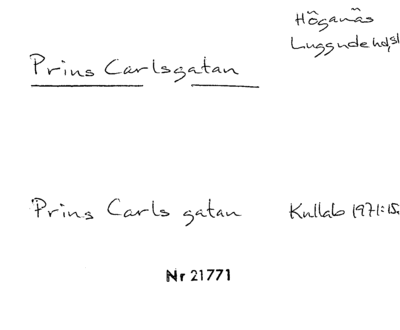 Höganäs
Luggude hd, sk
Prins Carlsgatan
Prins Carls gatan
Kullab 1971:15.
Nr 21771